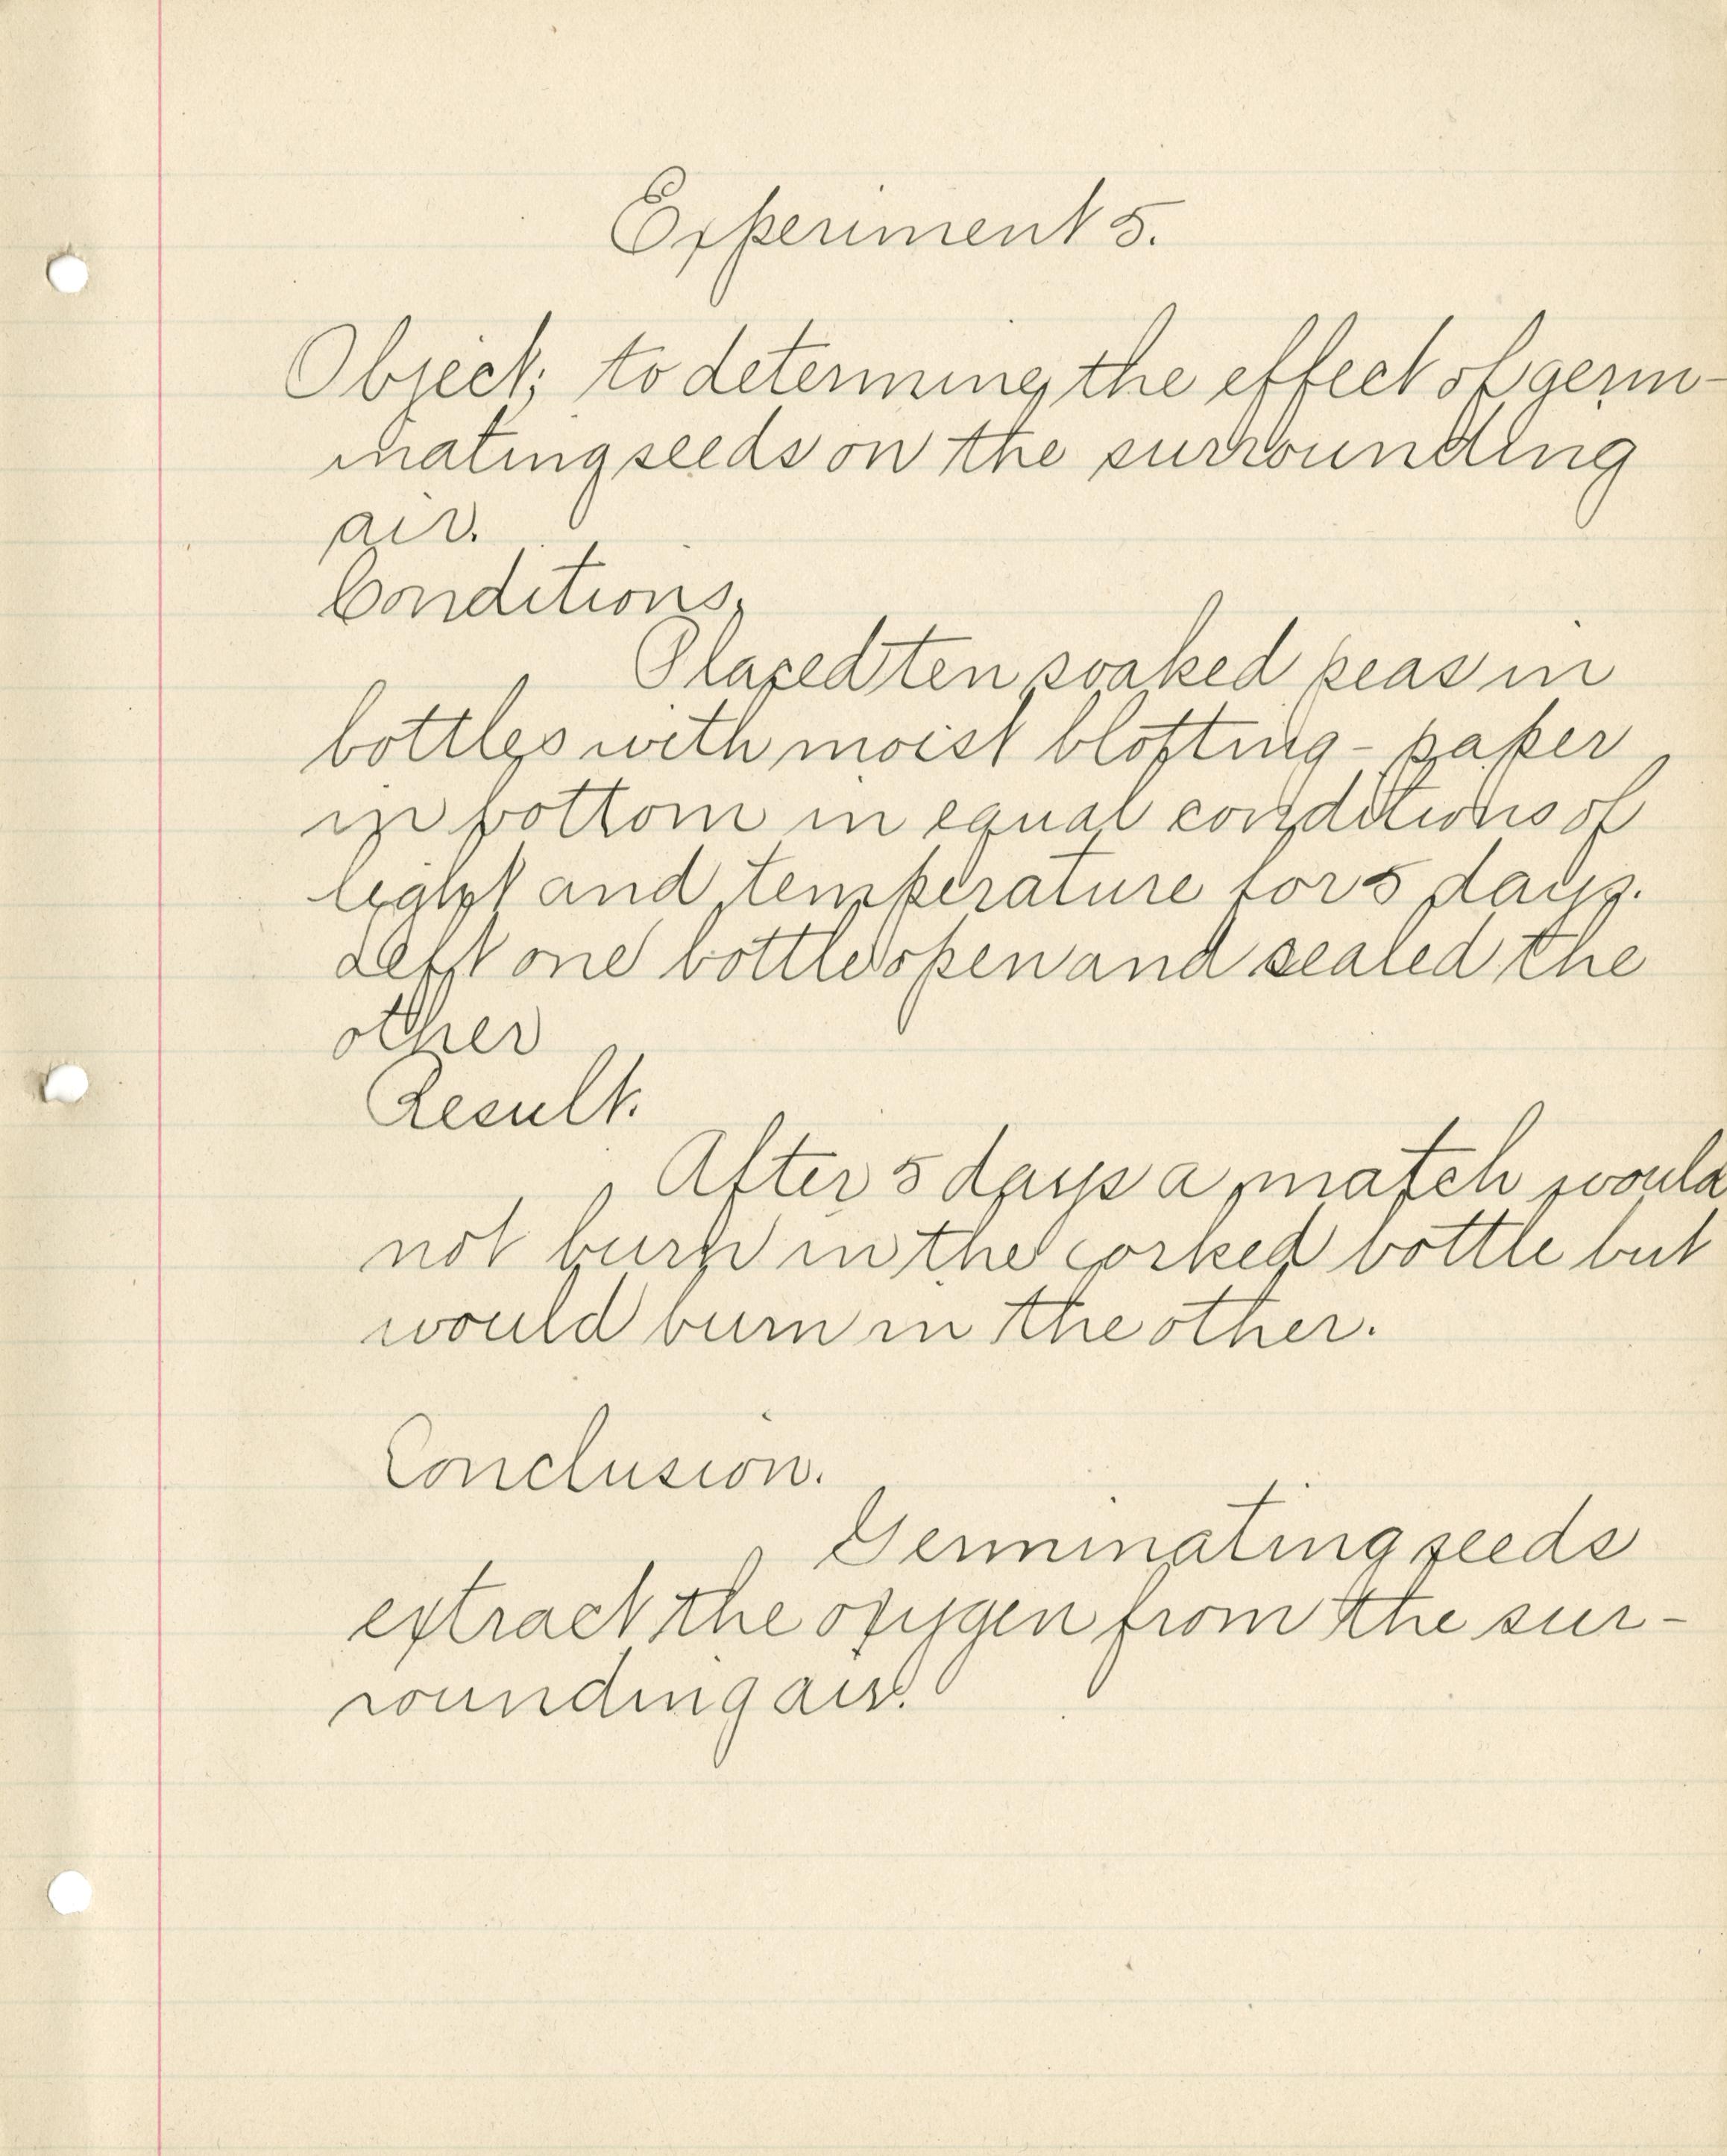 Experiment 5.
Object; to determine, the effect of germ-
inating seeds on the surrounding
air.
Conditions,
Placed ten soaked peas in
bottles with moist blotting-paper
in bottom in equal conditions of
light and temperature for 5 days.
Left one bottle open and sealed the
other
Result.
After 5 days a match would
not burn in the corked bottle but
would burn in the other.
Conclusion.
Germinating seeds
extract the oxygen from the sur-
rounding air.